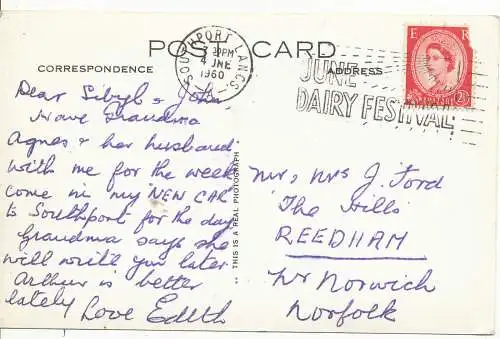 POST CARD
CORRESPONDENCE
ADDRESS
SOUTHPORT LANCS
7 30PM
4 JNE
1960
JUNE
DAIRY FESTIVAL
E R
2½
Dear Sibyl & John
Have Grandma
Agnes & her husband
with me for the week
come in my NEW CAR
to Southport for the day
Grandma says she
will write you later
Arthur is better
lately Love Edith
THIS IS A REAL PHOTOGRAPH
Mr, Mrs J. Ford
The Hills
REEDHAM
Nr Norwich
Norfolk